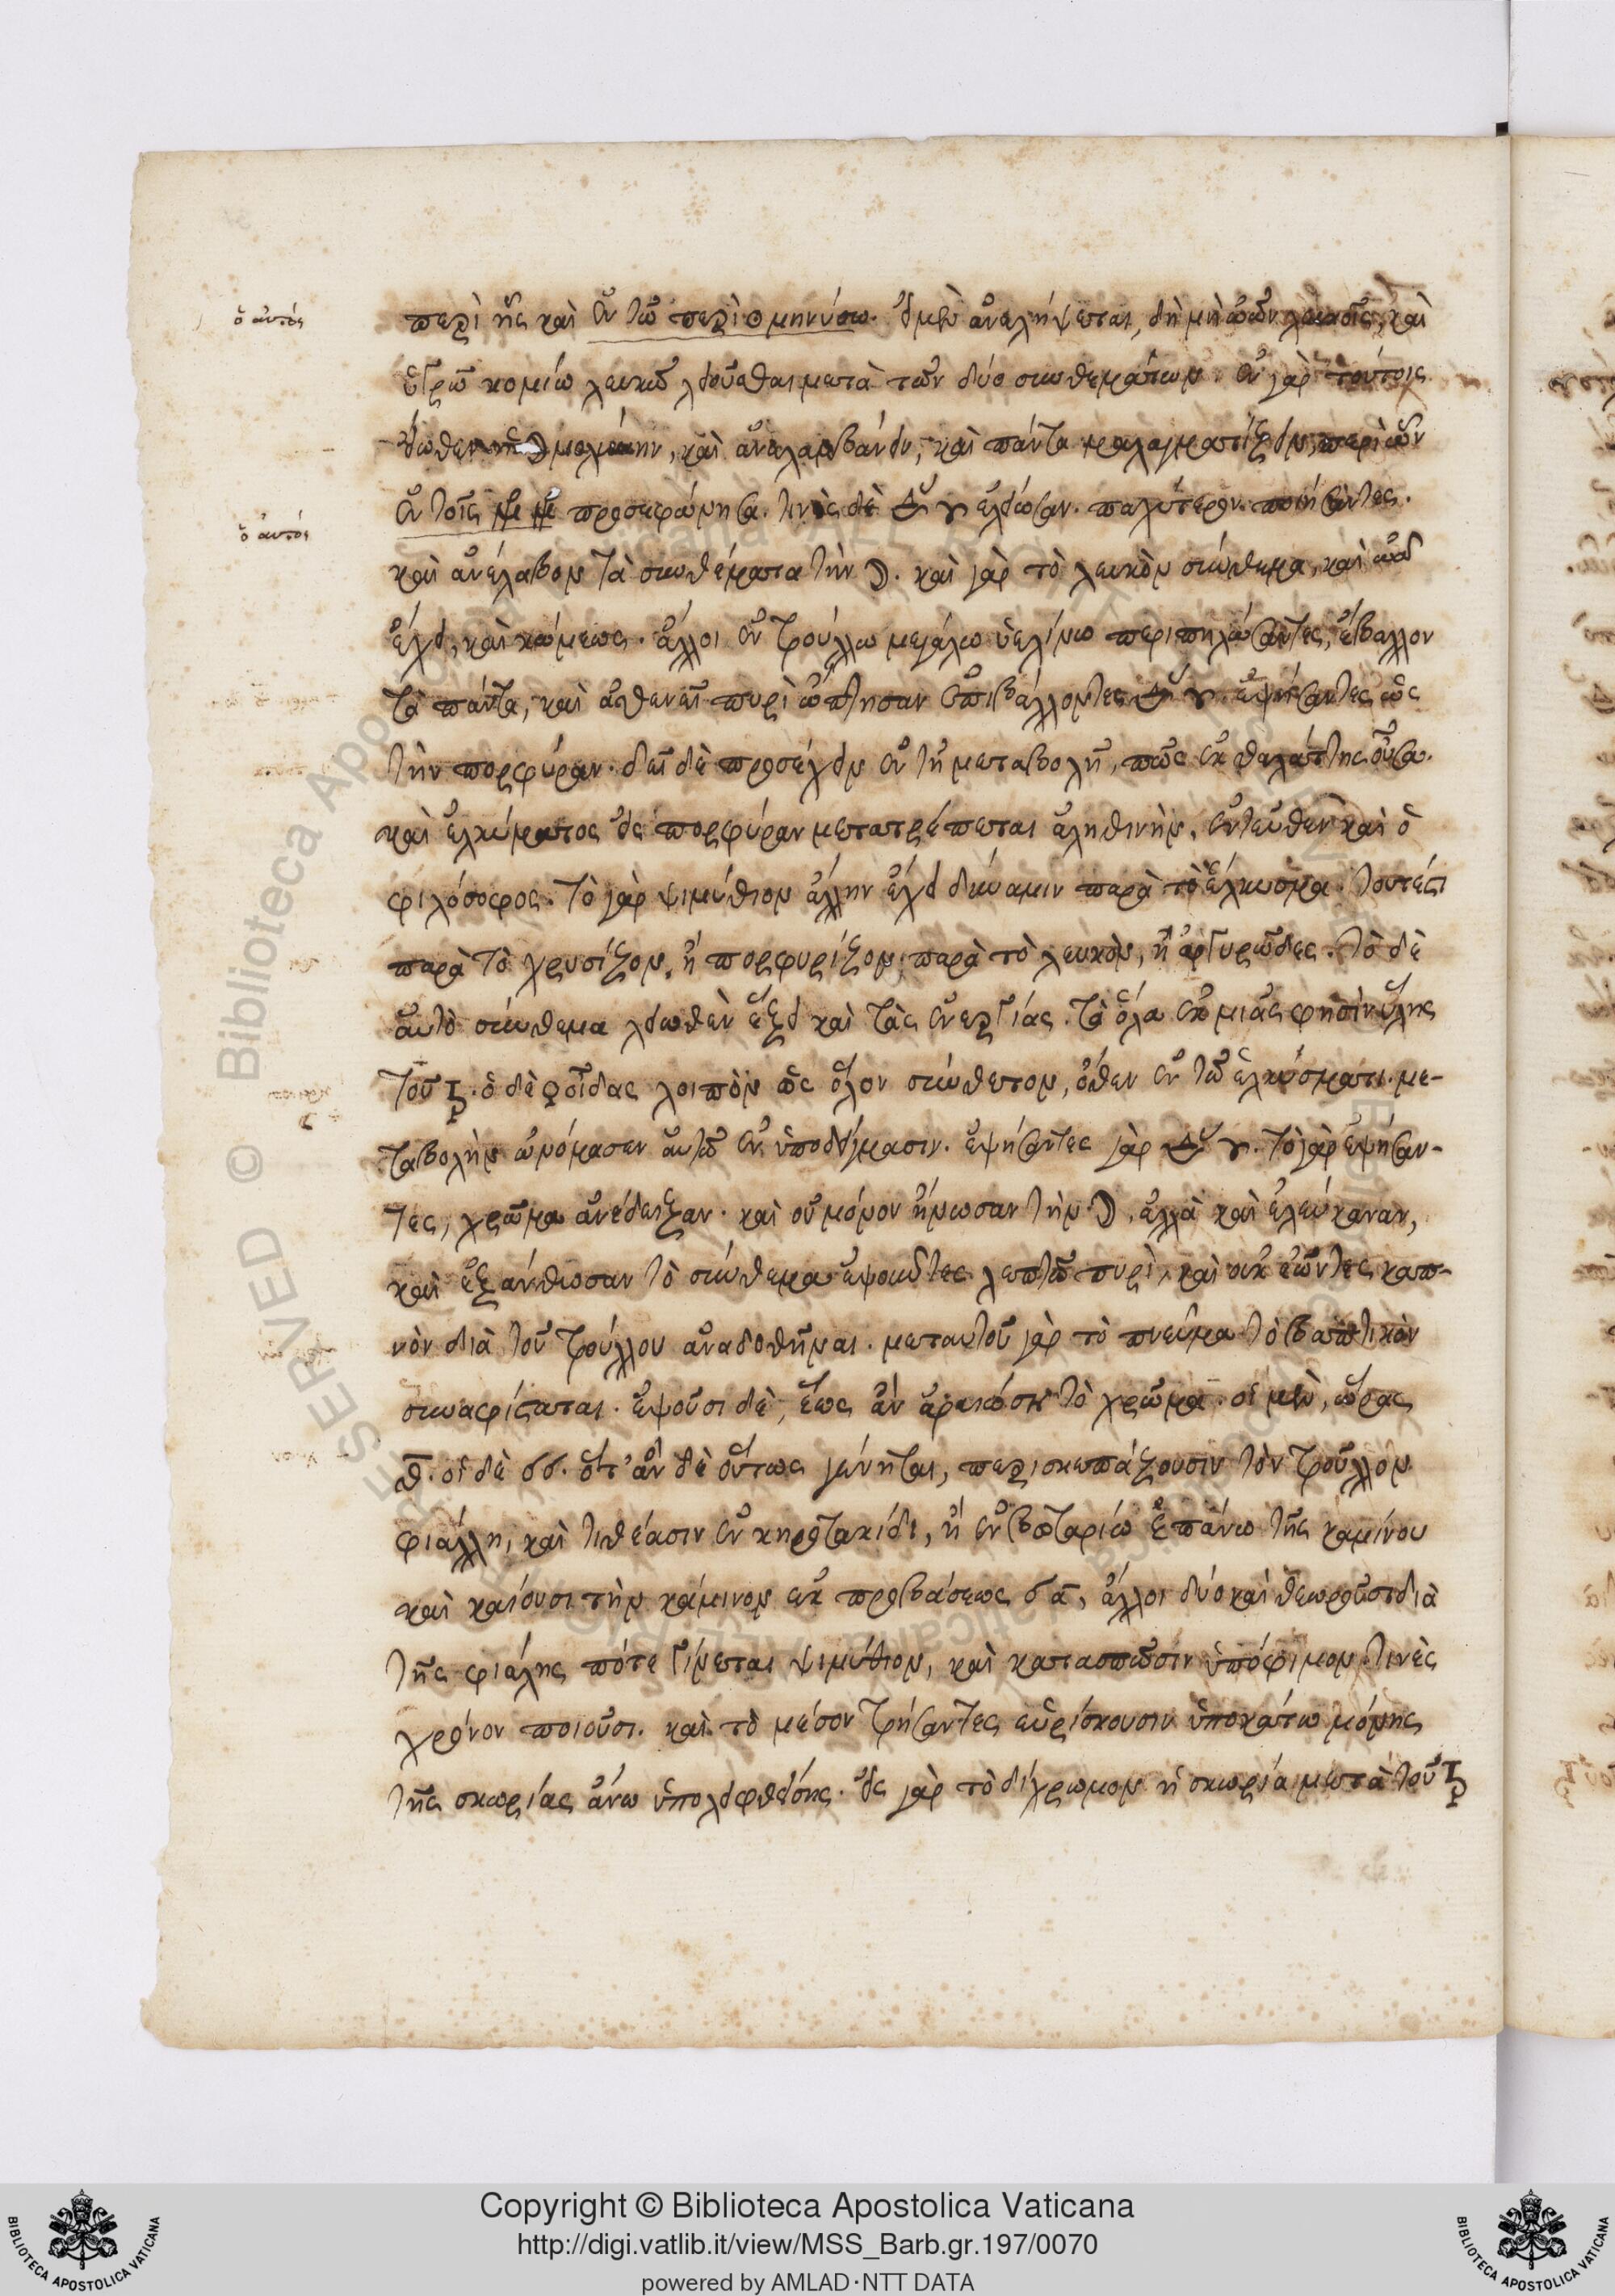 ὁ αὐτός
περὶ ἧς καὶ ἐν τῷ περὶ ☉ μηνύσω. εἰ μὲν ἀναλήψεται, δεῖ μὴ ὠῶν λευκοῖς, καὶ
ὑγρῷ κομίω λευκῷ λειοῦσθαι μετὰ τῶν δύο συνθεμάτων. ἐν γὰρ τούτοις
☽ μελαίνην, καὶ ἀναλαμβάνειν, καὶ πάντα μαλαγματίζειν, περὶ ὧν
ἐν τοῖς προσεφώνησα. τινὲς δὲ ἐλείωσαν. παλύτερον ποιήσαντες.
ὁ αὐτός
καὶ ἀνέλαβον τὰ συνθέματα τὴν ☽. καὶ γὰρ τὸ λευκὸν σύνθεμα, καὶ ὠὰ
ἔχει, καὶ κώμεως. ἄλλοι ἐν τρούλλω μεγάλω ὑελίνω περιπηλώσαντες, ἔβαλλον
τὰ πάντα, καὶ ἀσθενεῖ πυρὶ ὤπτησαν ἐπιβάλλοντες ἑψήσαντες ὡς
τὴν πορφύραν. δεῖ δὲ προσέχειν ἐν τῇ μεταβολῇ, πῶς ἐκ θαλάττης οὖσα.
καὶ ἑλκύματος εἰς πορφύραν μετατρέπεται ἀληθινὴν. ἐντεῦθεν καὶ ὁ
φιλόσοφος. τὸ γὰρ ψιμύθιον ἄλλην ἔχει δύναμιν παρὰ τὸ ἕλκυσμα. τουτέστι
παρὰ τὸ χρυσίζον, ἢ πορφυρίζον, παρὰ τὸ λευκὸν, ἢ ἀργυρῶδες. τὸ δὲ
αὐτὸ σύνθεμα λειωθὲν ἕξει καὶ τὰς ἐνεργίας. τὰ ὅλα ἐκ μιᾶς φησὶν ὕλης
τοῦ . ὁ δὲ ῥοΐδας λοιπὸν ὡς ὅλον σύνθετον, ὅθεν ἐν τῷ ἑλκύσματι. με-
ταβολὴν ὠνόμασεν αὐτῷ ἐν ὑποδείγμασιν. ἑψήσαντες γὰρ . τὸ γὰρ ἑψήσαν-
τες, χρῶμα ἀνέδειξαν. καὶ οὐ μόνον ἥνωσαν τὴν ☽, ἀλλὰ καὶ ἐλεύκαναν,
καὶ ἐξάνθωσαν τὸ σύνθεμα ἑψοῦντες λεπτῷ πυρὶ, καὶ οὐκ ἐῶντες καπ-
νὸν διὰ τοῦ τρούλλου ἀναδοθῆναι. μεταυτοῦ γὰρ τὸ πνεῦμα τὸ βαπτικὸν
συναφίσταται. ἑψοῦσι δὲ, ἕως ἂν ἀραιώσῃ τὸ χρῶμα. οἱ μὲν, ὥρας
θ. οἱ δὲ . ὅτ' ἂν δὲ οὕτως γένηται, περισκεπάζουσιν τὸν τροῦλλον
φιάλλη, καὶ τιθέασιν ἐν κηροτακίδι, ἢ ἐν βωταρίω ἐπάνω τῆς καμίνου
καὶ καίουσι τὴν κάμινον ἐκ προβάσεως , ἄλλοι δύο καὶ θεωροῦσι διὰ
τῆς φιάλης πότε γίνεται ψιμύθιον, καὶ κατασπῶσιν ὑπόφιμον. τινὲς
χρόνον ποιοῦσι. καὶ τὸ μέσον τρήσαντες εὑρίσκουσιν ὑποκάτω μόνης
τῆς σκωρίας ἄνω ὑπολειφθείσης. εἰς γὰρ τὸ δίχρωμον ἡ σκωρία μετὰ τοῦ
Copyright © Biblioteca Apostolica Vaticana
http://digi.vatlib.it/view/MSS_Barb.gr.197/0070
powered by AMLAD·NTT DATA